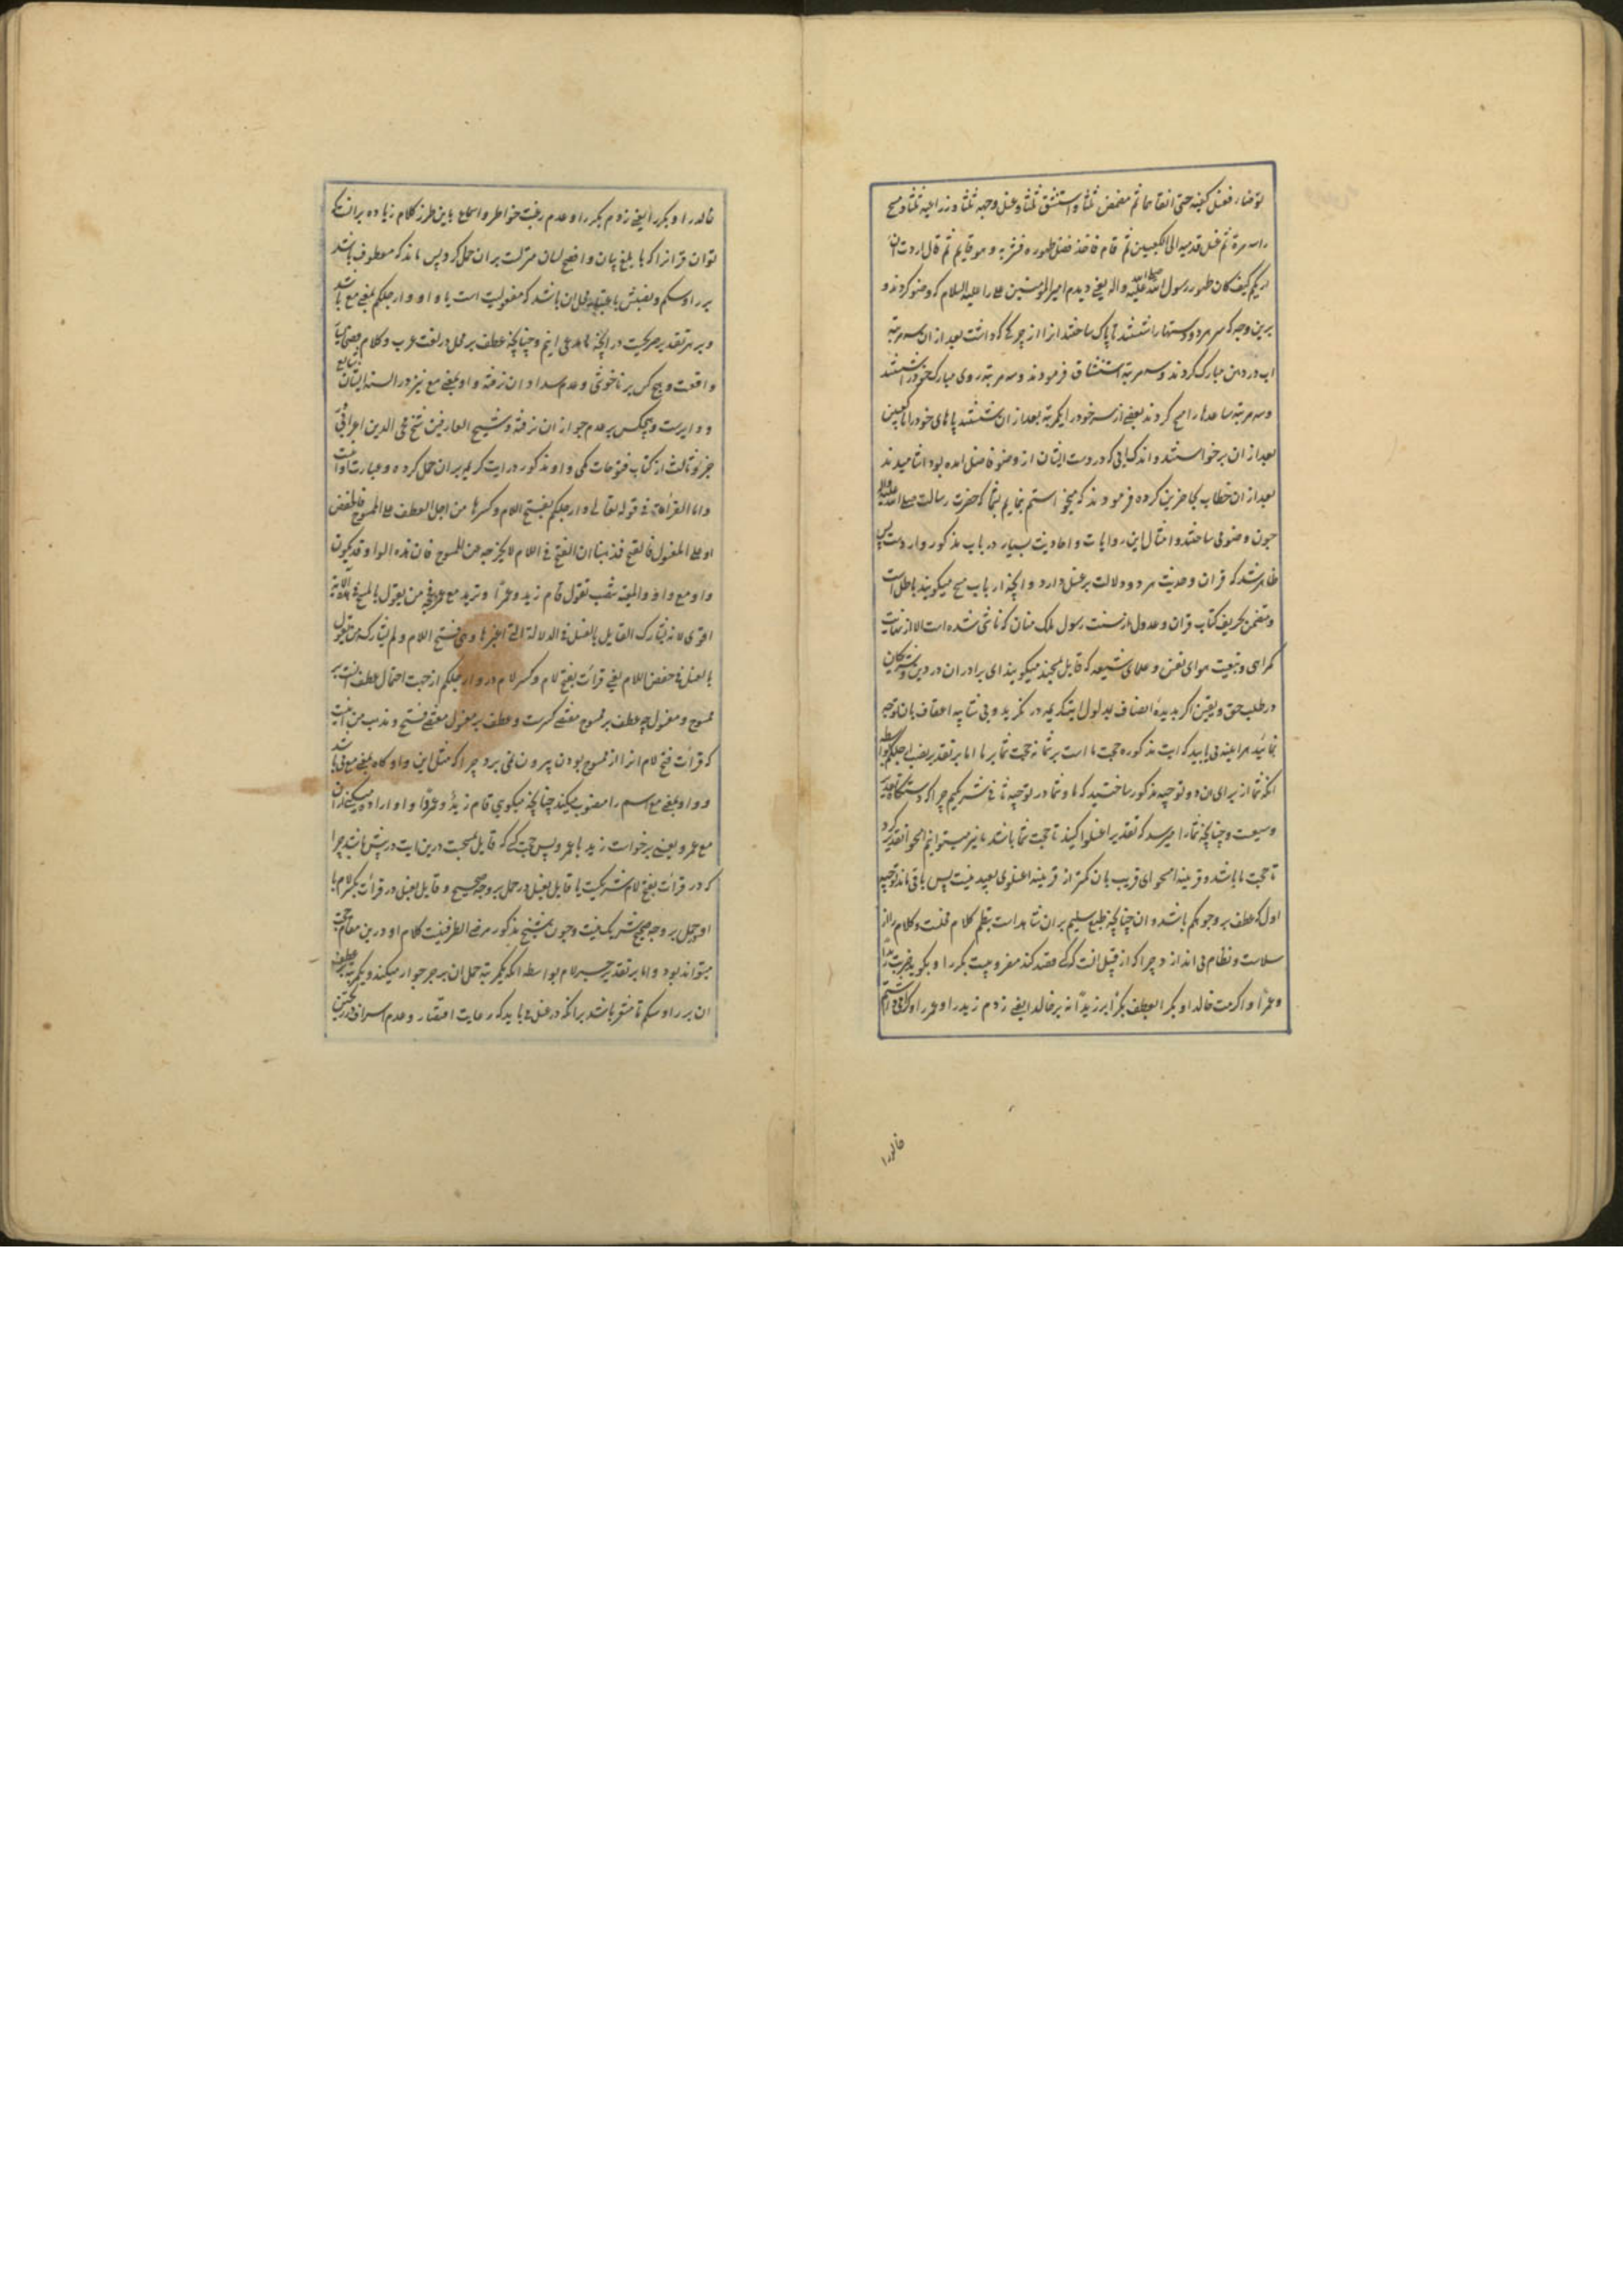 توضأ، فغسل کفیه حتی انقاهما ثم مضمض ثلثا و استنشق ثلثا و غسل وجهه ثلثا و ذراعیه ثلثا و مسح
راسه مرة ثم غسل قدمیه الی الکعبین ثم قام فاخذ فضل طهوره فشربه و هو قایم ثم قال اردت ان
اریکم کیف کان طهور رسول الله صلی الله علیه و اله یعنی دیدم امیرالمومنین علی را علیه السلام که وضو کردند و
برین وجه که هر دو دستها را شستند تا پاک ساختند انرا از چرکی که داشت بعد از ان سه مرتبه
اب در دهن مبارک کردند و سه مرتبه استنشاق فرمودند و سه مرتبه روی مبارک خود را شستند
و سه مرتبه ساعدها را مسح کردند بعضی از سر خود را یکمرتبه بعد از ان شستند پاهای خود را تا کعبین
بعد از ان برخواستند و اندک ابی که در دست ایشان از وضو فاضل امده بود اشامیدند
بعد از ان خطاب بحاضرین کرده فرمودند که میخواستم بنمایم بشما که حضرت رسالت صلی الله علیه و اله
چون وضو می ساختند و امثال این روایات و احادیث بسیار در باب مذکور وارد است پس
ظاهر شد که قران و حدیث هر دو دلالت بر غسل دارد و انچه ارباب مسح میکویند باطل است
و متضمن تحریف کتاب قران و عدول از سنت رسول ملک منان که ناشی شده است الا از غایت
کمراهی و تبعیت هوای نفس و علمای شیعه که قایل بمسحند میکویند ای برادران در دین و شریکان
در طلب حق و یقین اکر بدیده انصاف بمدلول ایتکریمه در نکرید و بی شایبه اعتساف بان توجه
نمائید هر اینه می یابید که ایت مذکوره حجت ما است بر شما نه حجت شما بر ما اما بر تقدیر نصب ارجلکم بواسطه
انکه شما از برای ان دو توجیه مذکور ساختید که ما و شما در توجیه ثانی شریکیم چرا که دستکاه تقدیر
وسیعست و چنانچه شما را میرسد که تقدیر اغسلوا کنید تا حجت شما باشد ما نیز میتوانیم امسحوا تقدیر کرد
تا حجت ما باشد و قرینه امسحوای قریب بان کمتر از قرینه اغسلوی بعید نیست پس باقی ماند توجیه
اول که عطف بر وجوهکم باشد و ان چنانچه طبع سلیم بران شاهد است نظم کلام فصاحت و کلام را از
سلاست و نظام می اندازد چرا که از قبیل انست که کسی قصد کند مضروبیت بکر را و بکوید ضربت زیدا
و عمرا و اکرمت خالدا و بکرا بعطف بکرا بر زیدا نه بر خالدا یعنی زدم زید را و عمرو را و کرامی داشتم
خالد را
خالد را و بکر را یعنی زدم بکر را و عدم رغبت خواطر و اسماع باین طرز کلام زیاده بر انست که
توان قران را که بابلغ بیان و افصح لسان منزلست بران حمل کرد پس ماند که معطوف باشد
بر رؤسکم و نصبش باعتبار محل ان باشد که مفعولیت است یا واو و ارجلکم بمعنی مع باشد
و بر هر تقدیر صریحست در انچه ما مدعی انیم و چنانچه عطف بر محل در لغت عرب و کلام فصحا شایع
و واقعست و هیچ کس بر ناخوشی و عدم سداد ان نرفته واو بمعنی مع نیز در السنه ایشان شایع
و دایرست و هیچکس بر عدم جواز ان نرفته و شیخ العارفین شیخ محی الدین اعرابی در
جزو ثالث از کتاب فتوحات مکی واو مذکور در ایت کریمه بران حمل کرده و عبارتش اینست
و اما القراءة فی قوله تعالی و ارجلکم بفتح اللام و کسرها من اجل العطف علی الممسوح فالخفض
او علی المغسول فالفتح فمذهبنا ان الفتح فی اللام لا یخرجه عن الممسوح فان هذه الواو قد تکون
واو مع و واو المعیة تنصب تقول قام زید و عمرا و ترید مع عمرو فحجة من یقول بالمسح فی هذه الایة
اقوی لانه یشارک القایل بالغسل فی الدلالة التی اعتبرها و هی فتح اللام و لم یشارکه من یقول
بالغسل فی خفض اللام یعنی قرائت بفتح لام و کسر لام در و ارجلکم از جهت احتمال عطف انست بر
ممسوح و مغسول چه عطف بر ممسوح مقتضی کسرست و عطف بر مغسول مقتضی فتح و مذهب من اینست
که قرائت فتح لام انرا از ممسوح بودن بیرون نمی برد چرا که مثل این واو کاه بمعنی مع می باشد
و واو بمعنی مع اسم را منصوب میکند چنانچه میکویی قام زید و عمرا و اراده میکنی از ان
مع عمرو یعنی برخواست زید با عمرو پس حجت کسی که قایل بمسحست درین ایت در پیش است چرا
که در قرائت بفتح لام شریکست با قایل بغسل در حمل بر وجه صحیح و قایل بغسل در قرائت بکسر لام با
او در حمل بر وجه صحیح شریک نیست و چون شیخ مذکور مرضی الطرفینست کلام او درین مقام حجت
میتواند بود و اما بر تقدیر جر لام بواسطه انکه یکمرتبه حمل ان بر جر جوار میکنند و یکمرتبه عطف
ان بر رؤسکم تا مشعر باشد برانکه در غسل می باید که رعایت اقتصار و عدم اسراف در ریختن